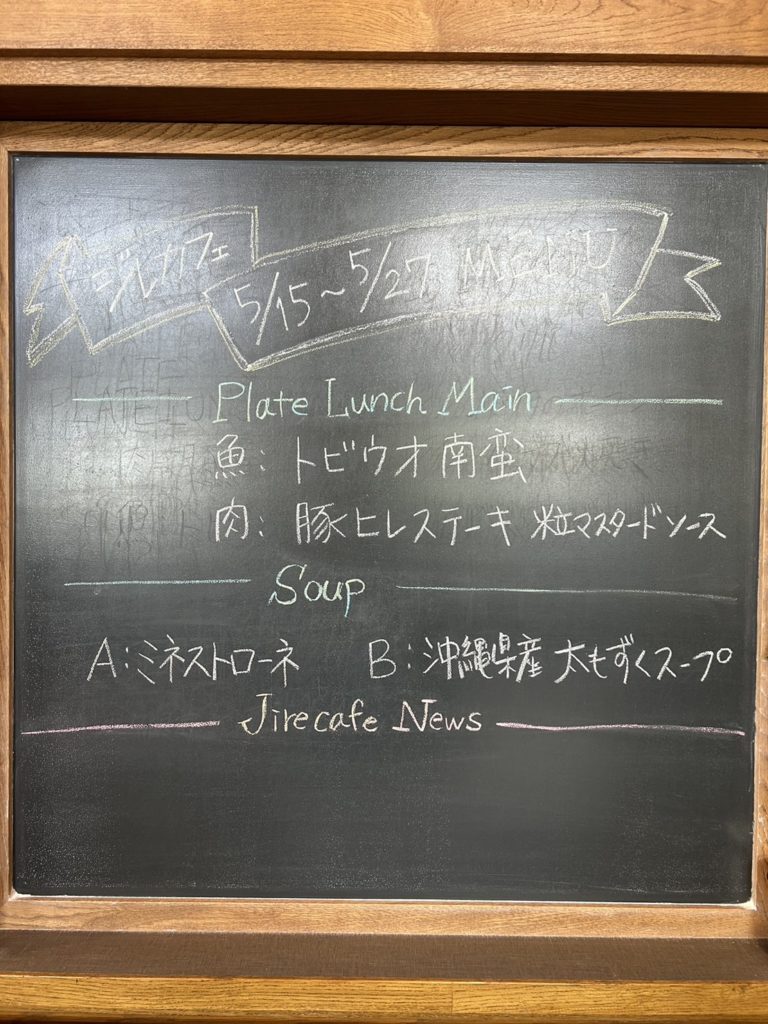 ジルカフェ
5/15～5/27 MENU
Plate Lunch Main
魚: トビウオ南蛮
肉: 豚ヒレステーキ 粒マスタードソース
Soup
A:ミネストローネ B:沖縄県産 太もずくスープ
Jirecafe News